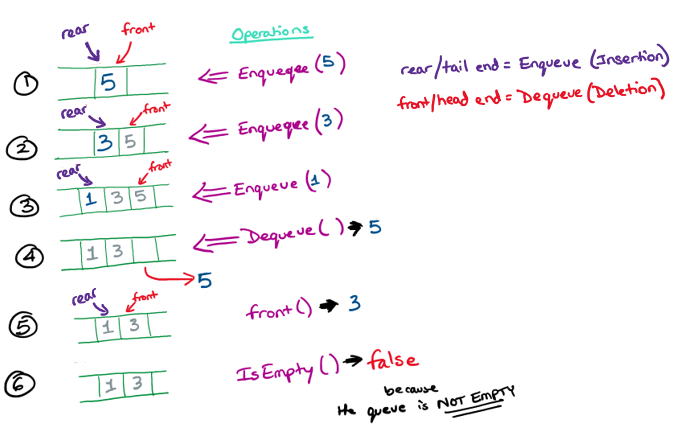 rear front Operations
① 5 ⇐ Enqueqee (5)
rear/tail end = Enqueue (Insertion)
front/head end = Dequeue (Deletion)
rear front
② 3 5 ⇐ Enqueqee (3)
rear front
③ 1 3 5 ⇐ Enqueue (1)
④ 1 3 ⇐ Dequeue ( ) → 5
5
rear front
⑤ 1 3 front () → 3
⑥ 1 3 IsEmpty () → false
because
the queue is NOT EMPTY